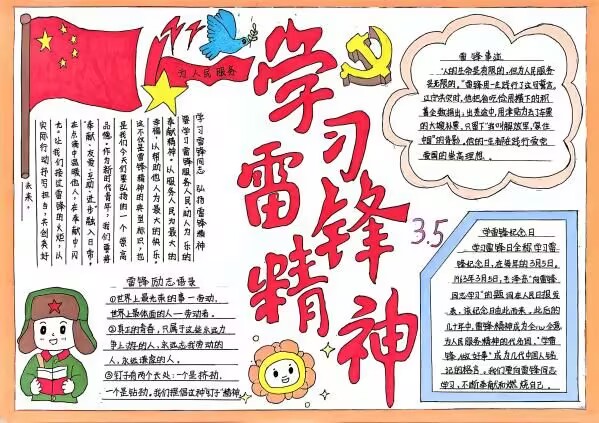 为人民服务
学习
雷锋
精神
3.5
学习雷锋同志 弘扬雷锋精神
要学习雷锋服务人民助人为乐的
奉献精神。以服务人民为最大的
幸福,以帮助他人为最大的快乐。
这不仅是雷锋精神的典型标识,也
是我们今天们要弘扬的一个崇高
品德。作为新时代青年,我们要将
"奉献、友爱、互助、进步"融入日常,
在点滴中温暖他人,在奉献中闪
光。让我们接过雷锋的火炬,以
实际行动抒写担当,共创美好
未来。
雷锋事迹
"人的生命是有限的,但为人民服务
是无限的。"雷锋用一生践行了这句誓言。
辽宁洪灾时,他把省吃俭用攒下的积
蓄全数捐出;出差途中,用津贴为丢了车票
的大嫂补票,只留下"我叫解放军,家住
中国"的背影。他的一生都在践行着爱党
爱国的崇高理想。
雷锋励志语录
①世界上最光荣的事—劳动。
世界上最体面的人—劳动者。
②真正的青春,只属于这些永远力
争上游的人,永远忘我劳动的
人,永远谦虚的人。
③钉子有两个长处:一个是挤劲,
一个是钻劲。我们提倡这种"钉子"精神
学雷锋纪念日
学习雷锋日全称学习雷
锋纪念日,在每年的3月5日。
1963年3月5日,毛泽东"向雷锋
同志学习"的题词在人民日报发
表,该纪念日由此而来。此后的
几十年中,雷锋精神成为全心全意
为人民服务精神的代名词,"学雷
锋,做好事"成为几代中国人铭
记的格言。我们要向雷锋同志
学习,不断奉献和燃烧自己。